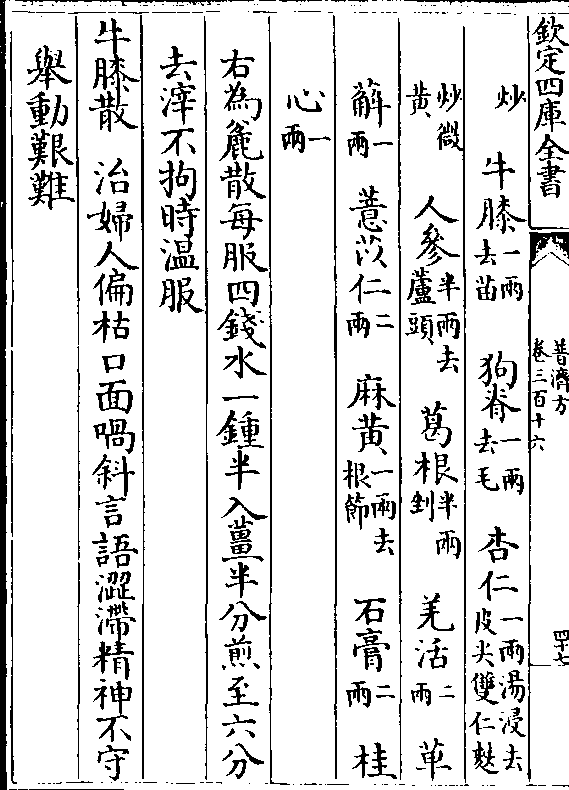 欽定四庫全書
普濟方
卷三百十六
四十七
炒　牛膝一兩去苗　狗脊一兩去毛　杏仁一兩湯浸去皮尖雙仁麩
炒微黄　人參半兩去蘆頭　葛根半兩剉　羌活二兩　萆
薢一兩　薏苡仁二兩　麻黄一兩去根節　石膏二兩　桂
心一兩
右為麄散每服四錢水一鍾半入薑半分煎至六分
去滓不拘時温服
牛膝散　治婦人偏枯口面喎斜言語澀滯精神不守
舉動艱難